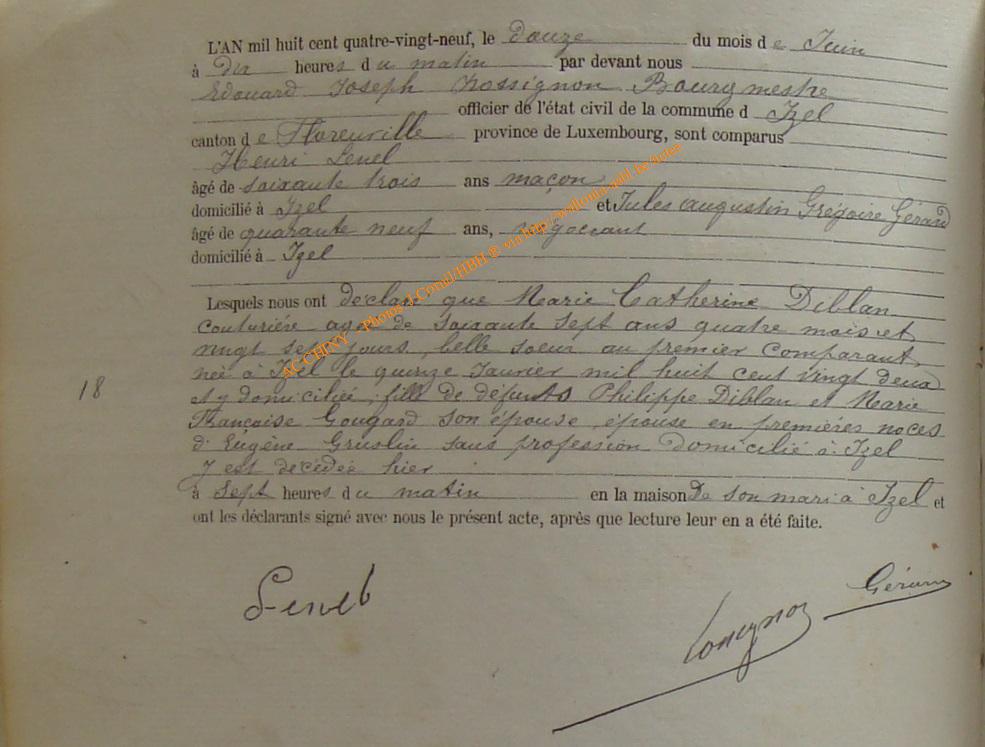 L'AN mil huit cent quatre-vingt-neuf, le douze du mois de Juin
à dix heures du matin par devant nous
Edouard Joseph Rossignon Bourgmestre
officier de l'état civil de la commune d Izel
canton de Florenville province de Luxembourg, sont comparus
Henri Lenel
âgé de soixante trois ans maçon
domicilié à Izel et Jules augustin Grégoire Gérard
âgé de quarante neuf ans, négociant
domicilié à Izel
Lesquels nous ont déclaré que Marie Catherine Diblan
couturière agée de soixante sept ans quatre mois et
vingt sept jours, belle soeur au premier comparant,
née à Izel le quinze Janvier mil huit cent vingt deux
et y domiciliée, fille de défunts Philippe Diblan et Marie
18
Françoise Gougard son épouse, épouse en premières noces
d'Eugène Gruslin sans profession domicilié à Izel
y est décédée hier
à sept heures du matin en la maison De son mari à Izel et
ont les déclarants signé avec nous le présent acte, après que lecture leur en a été faite.
ACCHINY - Photos J.Cornil/HBH ® via http://wallonia-asbl.be/
Lenel
Gérard
Rossignon